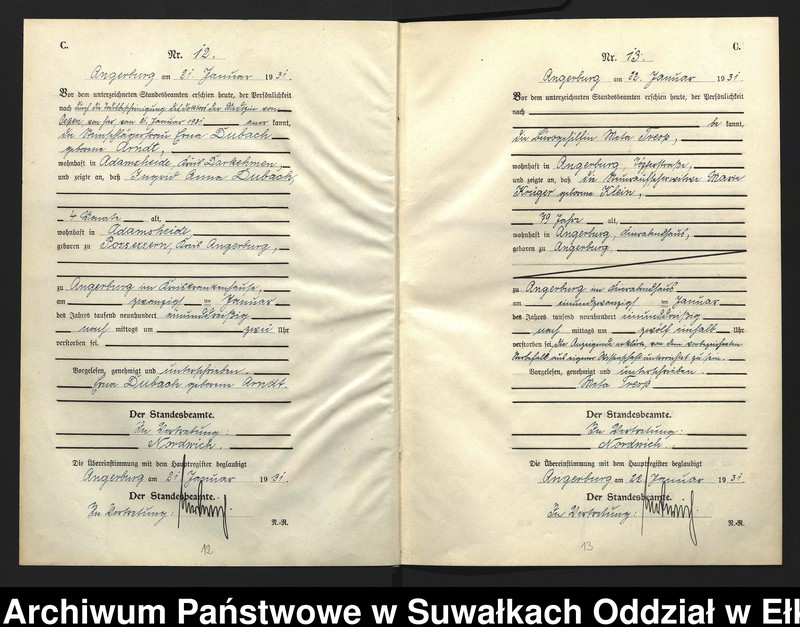 C.
Nr. 12.
Angerburg am 21. Januar 1931.
Vor dem unterzeichneten Standesbeamten erschien heute, der Persönlichkeit
nach durch die Leichenbescheinigung des Doktors der Medizin von
von hier, vom 21. Januar 1931 anerkannt,
die Steinschlägerfrau Erna Dubach
geborene Arndt,
wohnhaft in Adamsheide, Kreis Darkehmen,
und zeigte an, daß Ingrid Anna Dubach,
4 Monate alt,
wohnhaft in Adamsheide
geboren zu Possessern, Kreis Angerburg,
zu Angerburg im Kreiskrankenhause,
am zwanzigsten Januar
des Jahres tausend neunhundert einunddreißig
nach mittags um zwei Uhr
verstorben sei.
Vorgelesen, genehmigt und unterschrieben.
Erna Dubach geborene Arndt.
Der Standesbeamte.
In Vertretung:
Nordwich.
Die Übereinstimmung mit dem Hauptregister beglaubigt
Angerburg am 21. Januar 1931.
Der Standesbeamte.
In Vertretung:
N.-R.
12
C.
Nr. 13.
Angerburg am 22. Januar 1931.
Vor dem unterzeichneten Standesbeamten erschien heute, der Persönlichkeit
nach
be kannt,
die Bürogehilfin Meta
wohnhaft in Angerburg, Töpferstraße,
und zeigte an, daß die Marie
Krüger geborene Klein,
79 Jahre alt,
wohnhaft in Angerburg,
geboren zu Angerburg,
zu Angerburg im
am einundzwanzigsten Januar
des Jahres tausend neunhundert einunddreißig
nach mittags um zwölf einhalb Uhr
verstorben sei. Die Anzeigende erklärte, von dem vorbezeichneten
Sterbefall aus eigener Wissenschaft unterrichtet zu sein.
Vorgelesen, genehmigt und unterschrieben.
Meta
Der Standesbeamte.
In Vertretung:
Nordwich.
Die Übereinstimmung mit dem Hauptregister beglaubigt
Angerburg am 22. Januar 1931.
Der Standesbeamte.
In Vertretung:
N.-R.
13
Archiwum Państwowe w Suwałkach Oddział w Ełk